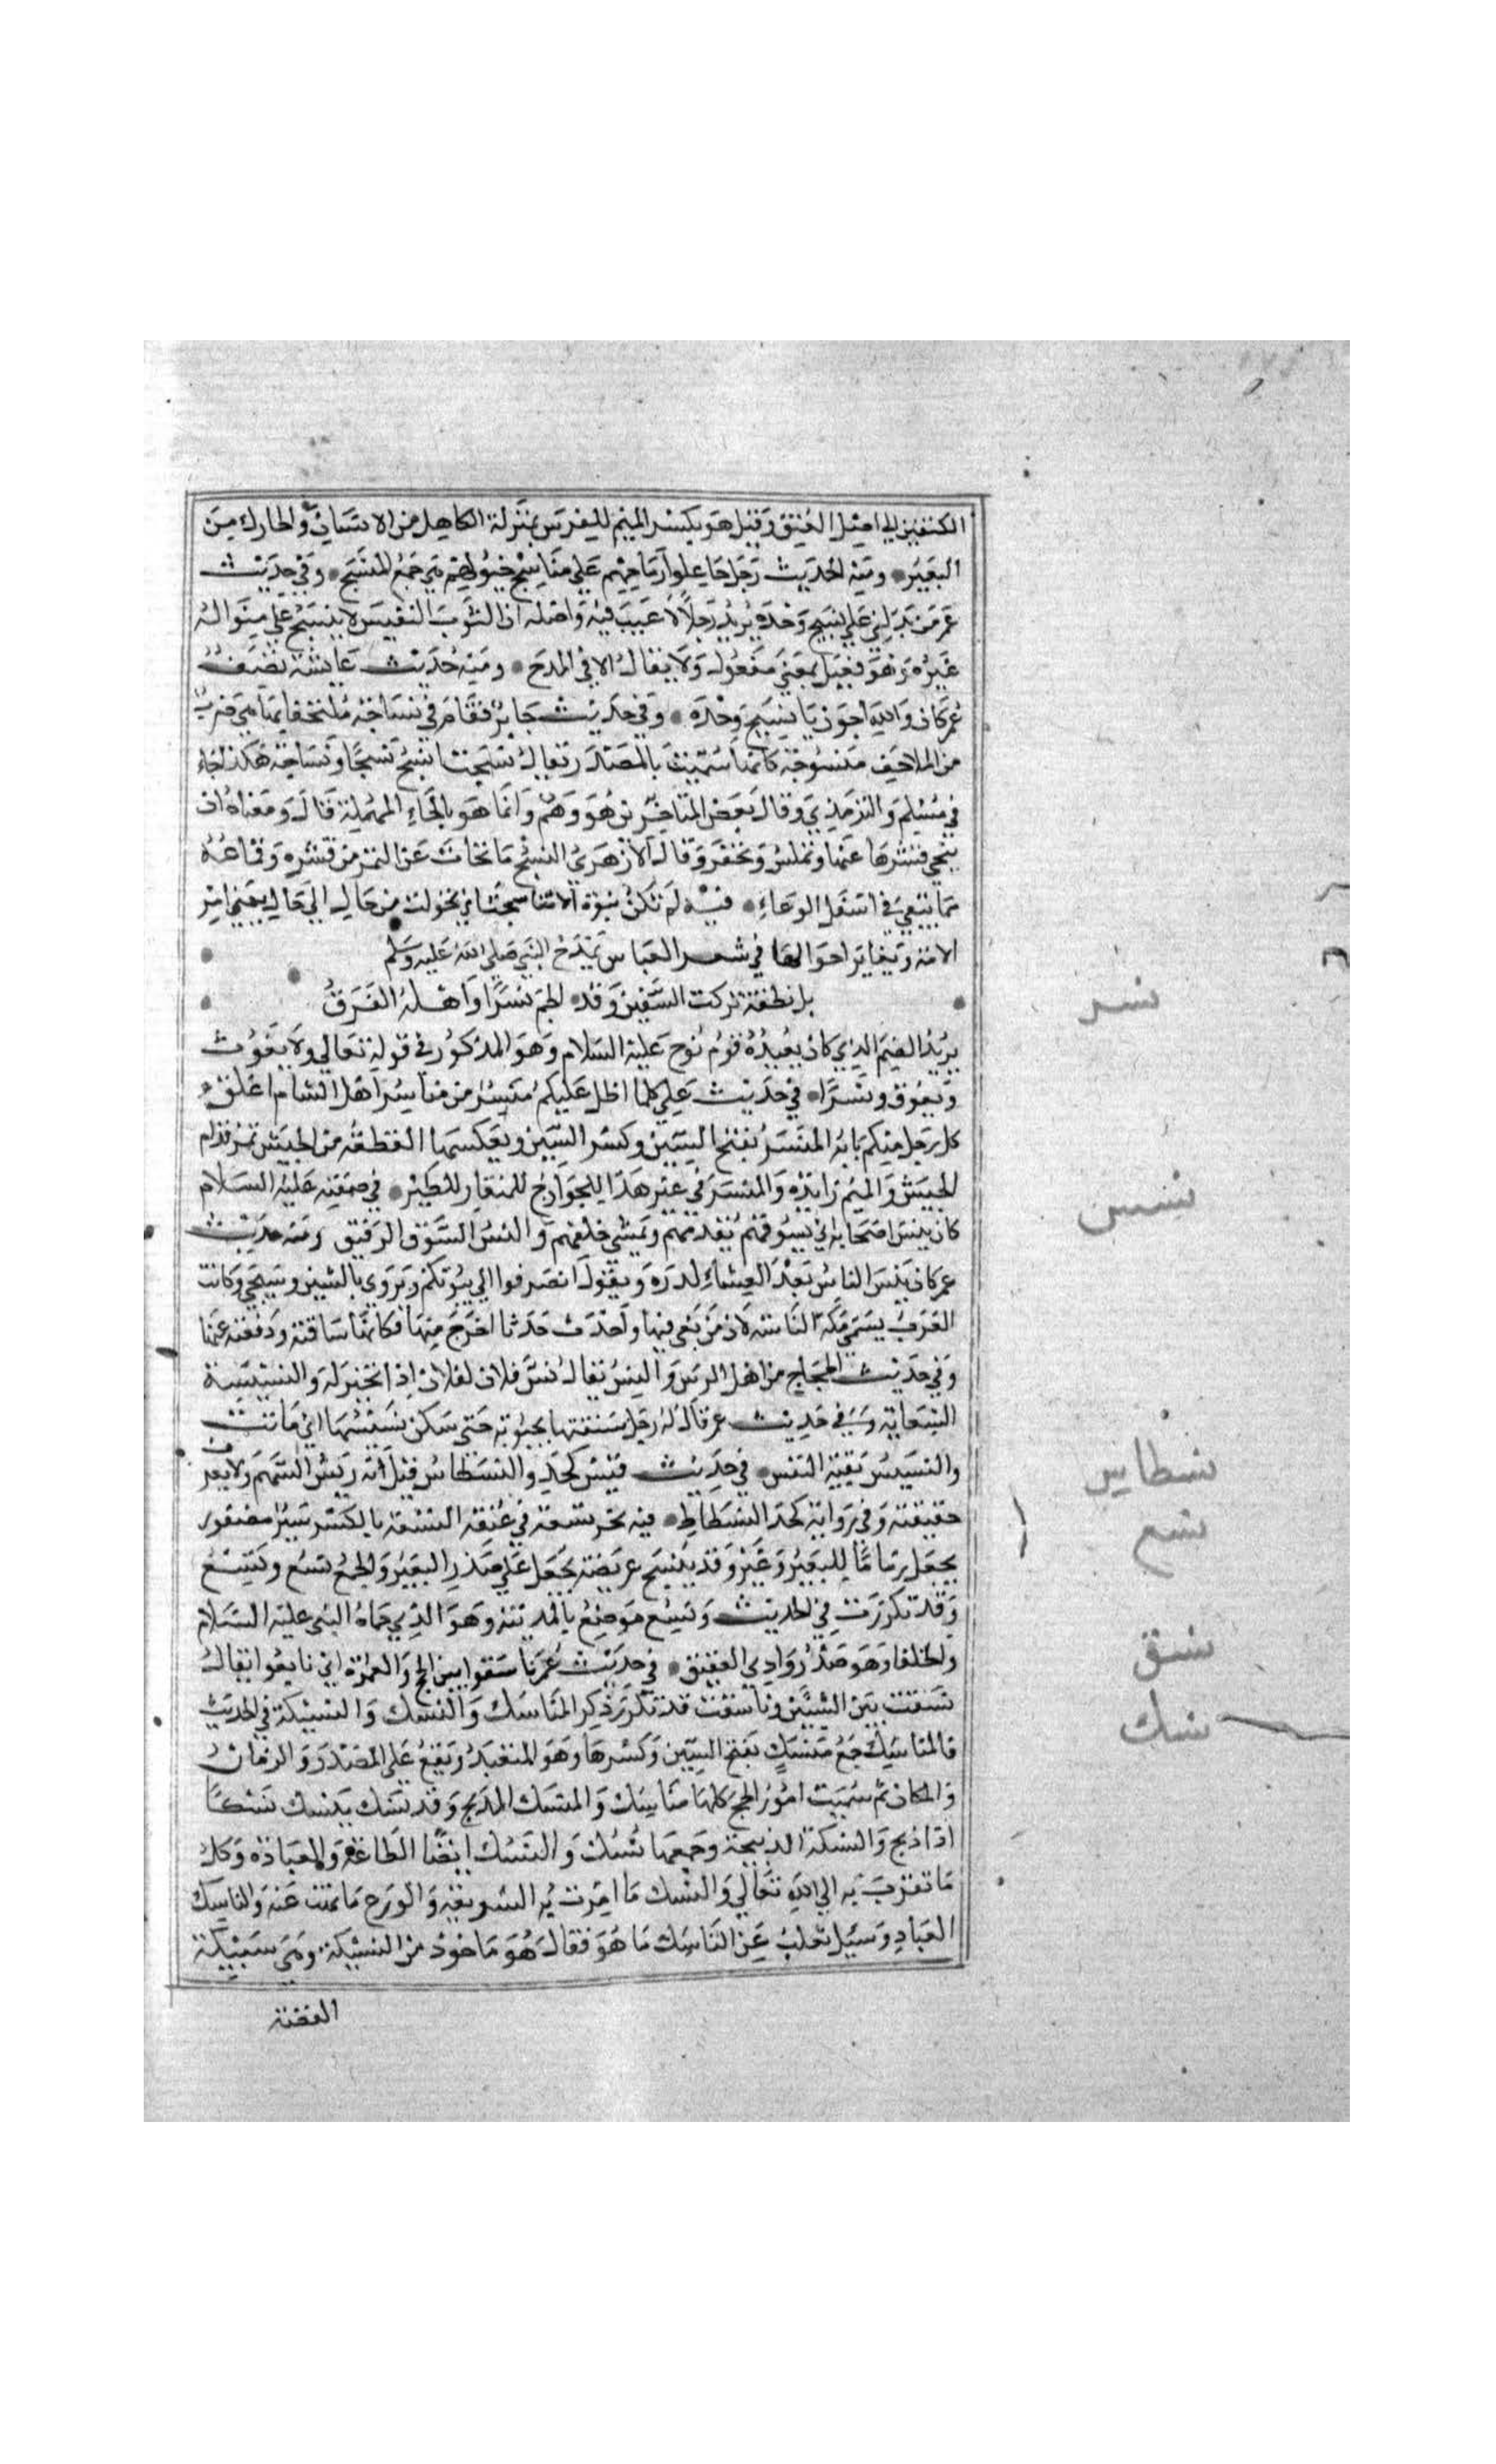 الكتفين الي اصل العنق وقيل هو بكسر الميم للفرس بمنزلة الكاهل من الانسان والحارك من
البعير ومنه الحديث رجل جاعلوا رماحهم علي مناسج خيولهم هي جمع المنسج وفي حديث
عمر من يدلني علي نسيج وحده يريد رجلا لا عيب فيه واصله ان الثوب النفيس لا ينسج علي منواله
غيره وهو فعيل بمعني مفعول ولا يقال الا في المدح ومنه حديث عايشة تصف
عمر كان والله احوذيا نسيج وحده وفي حديث جابر فقام في نساجة ملتحفا بها هي ضرب
من الملاحف منسوجة كانها سميت بالمصدر يقال نسجت انسج نسجا ونساجة هكذا جاء
في مسلم والترمذي وقال بعض المتاخرين هو وهم وانما هو بالحاء المهملة قال ومعناه ان
ينحي قشرها عنها وتملس وتحفر وقال الازهري النسج ما تحات عن التمر من قشره وفتاعه
مما يبقي في اسفل الوعاء فيه لم تكن نبوة الا تناسخت اي تحولت من حال الي حال يعني امر
الامة وتغاير احوالها في شعر العباس يمدح النبي صلي الله عليه وسلم
بل نطفة تركب السفين وقد لطم نسرا واهله الغرق
يريد الصنم الذي كان يعبده قوم نوح عليه السلام وهو المذكور في قوله تعالي ولا يغوث
ويعوق ونسرا في حديث علي كلما اظل عليكم منسر من مناسر اهل الشام اغلق
كل رجل منكم بابه المنسر بفتح الميم وكسر السين وبعكسهما القطعة من الجيش تمر قدام
الجيش والميم زائدة والمنسر في غير هذا للجوارح للمنقار للطير في صفته عليه السلام
كان ينس اصحابه اي يسوقهم يقدمهم ويمشي خلفهم والنس السوق الرفيق ومنه حديث
عمر كان ينس الناس بعد العشاء بالدرة ويقول انصرفوا الي بيوتكم ويروي بالشين وسيجي وكانت
العرب يسمي مكة الناسة لان من بغي فيها واحدث حدثا اخرج منها فكانما ساقته ودفعته عنها
وفي حديث الحجاج من اهل الرس والنس يقال نس فلان لفلان اذا تخير له والنسيسة
السعاية وسي في حديث عمر قال له رجل شنقتها بجبوبة حتي سكن نسيسها اي ماتت
والنسيس بقية النفس في حديث قيس كحذو النسطاس قيل انه ريش السهم ولا يعرف
حقيقته وفي رواية كحد النسطاط فيه نحر نسعة في عنقه النسعة بالكسر سير مضفور
يجعل زماما للبعير وغيره وقد ينسج عريضة يجعل علي صدر البعير والجمع نسع ونسع
وقد تكررت في الحديث ونسع موضع بالمدينة وهو الذي حماه النبي عليه السلام
والخلفا وهو صدر وادي العقيق في حديث عمر ناسقوا بين الحج والعمرة اي تابعوا يقال
نسقت بين الشيئين وناسقت قد تكرر ذكر المناسك والنسك والنسيكة في الحديث
فالمناسك جمع منسك بفتح السين وكسرها وهو المتعبد ويقع علي المصدر والزمان
والمكان ثم سميت امور الحج كلها مناسك والمنسك المذبح وقد نسك ينسك نسكا
اذا ذبح والنسيكة الذبيحة وجمعها نسك والنسك ايضا الطاعة والعبادة وكل
ما تقرب به الي الله تعالي والنسك ما امرت به الشريعة والورع ما نهت عنه والناسك
العباد وسئل ثعلب عن الناسك ما هو فقال هو ماخوذ من النسيكة وهي سبيكة
الفضة
نسر
نسس
نسطاس
نسع
نسق
نسك